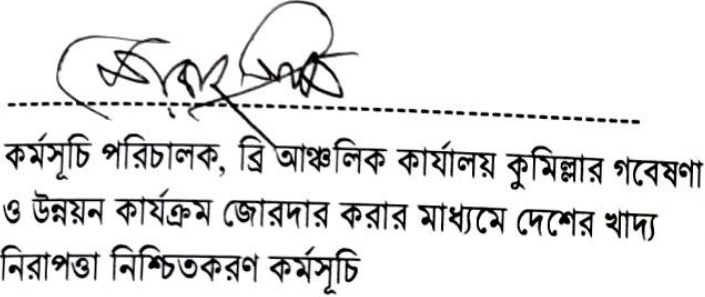 কর্মসূচি পরিচালক, ব্রি আঞ্চলিক কার্যালয় কুমিল্লার গবেষণা
ও উন্নয়ন কার্যক্রম জোরদার করার মাধ্যমে দেশের খাদ্য
নিরাপত্তা নিশ্চিতকরণ কর্মসূচি